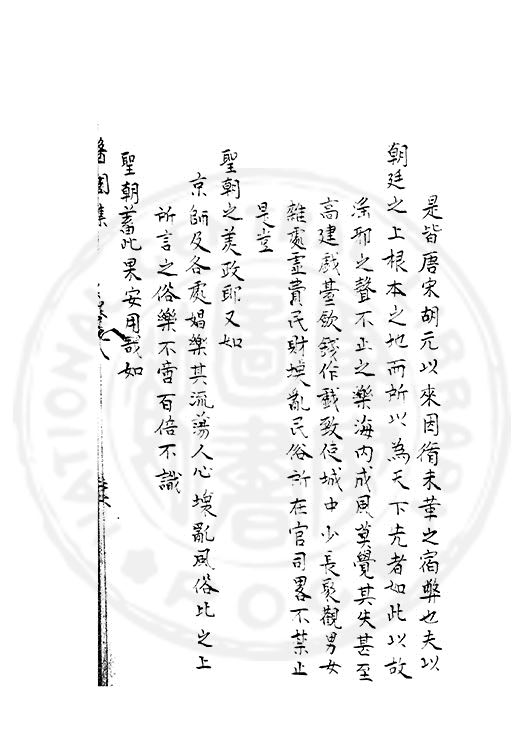 是皆唐宋胡元以來因循未革之宿弊也夫以
朝廷之上根本之地而所以為天下先者如此以故
淫邪之聲不止之樂海內成風莫覺其失甚至
高建戲臺歛錢作戲致使城中少長聚觀男女
雜處虛費民財壞亂民俗所在官司畧不禁止
是豈
聖朝之美政耶又如
京師及各處娼樂其流蕩人心壞亂風俗比之上
所言之俗樂不啻百倍不識
聖朝蓄此果安用哉如
醫閭集